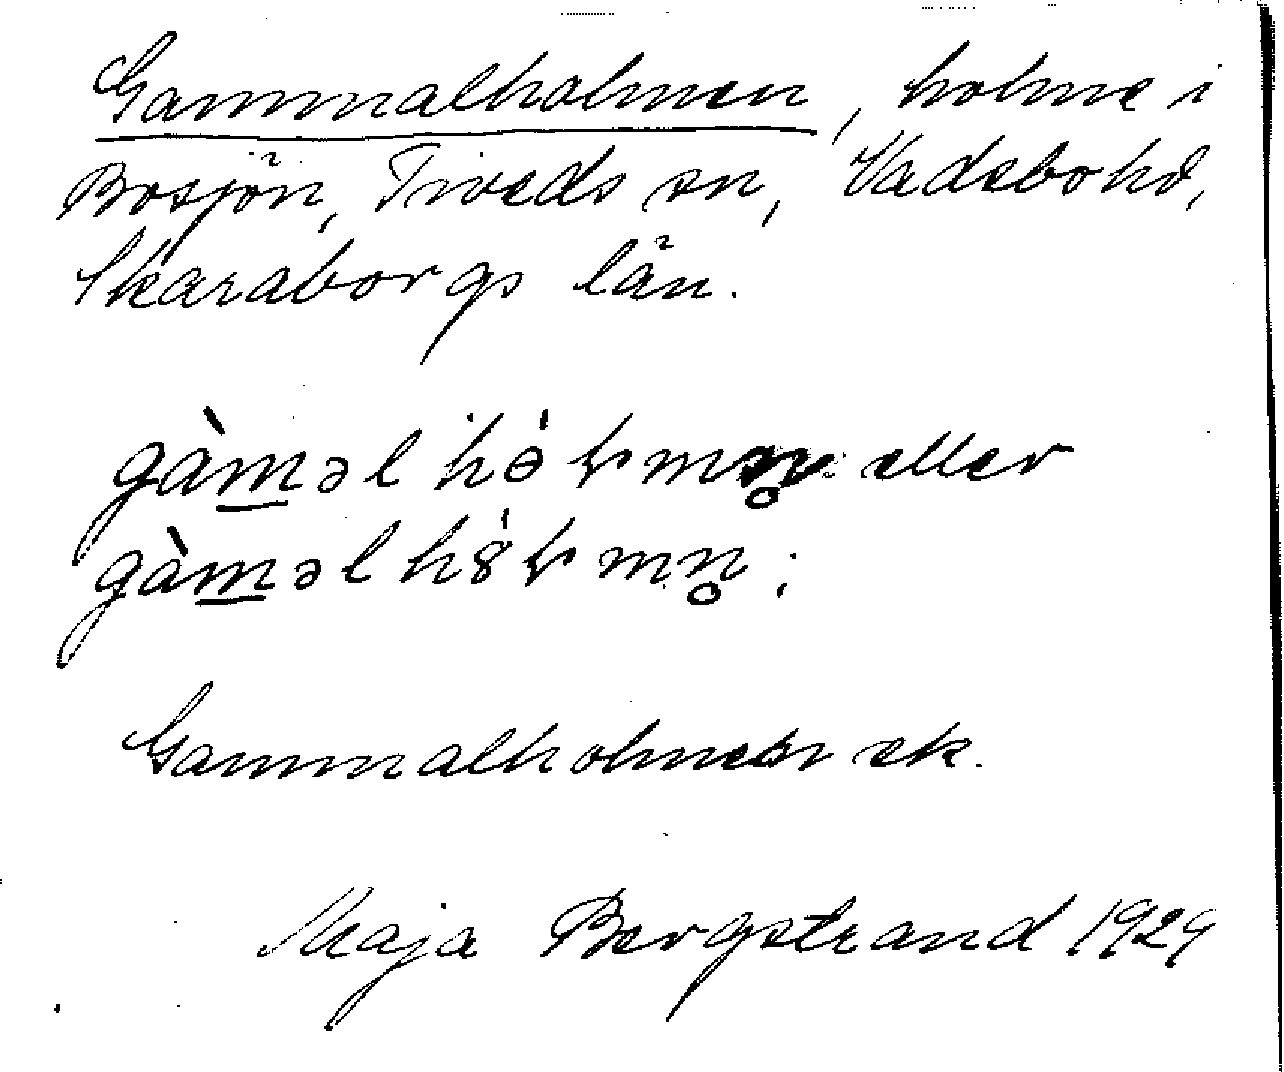 Gammalholmen, holme i
Bosjön, Tiveds sn, Vadsbo hd,
Skaraborgs län.
gàməl hɵ̇ɽmn̥ eller
gàməl hȣ̇ɽmn̥;
Gammalholmen ek.
Maja Bergstrand 1929